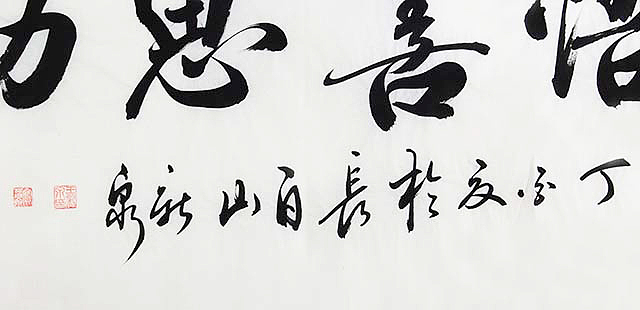 悟善思
丁酉夏於長白山新泉